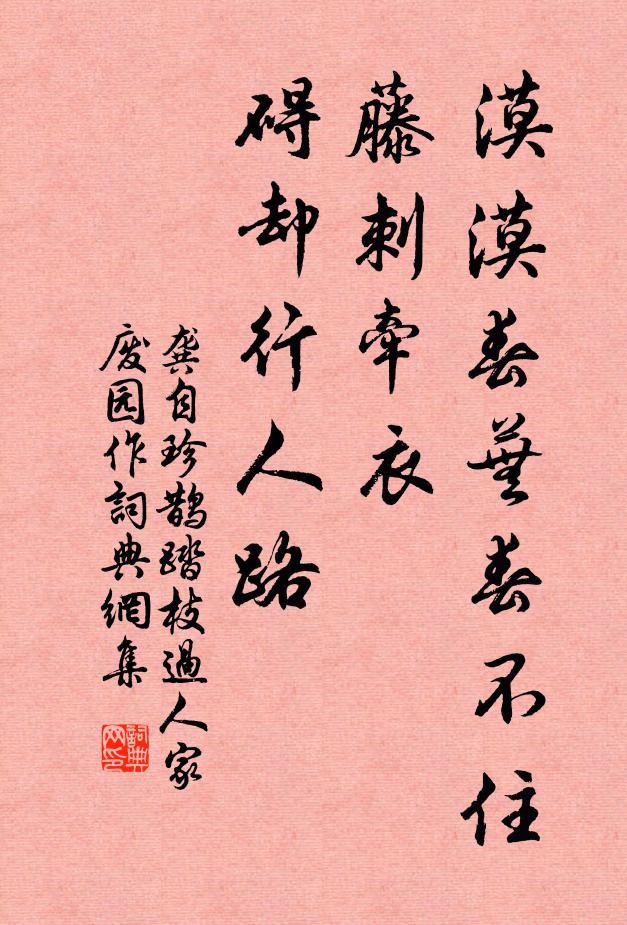 漠漠春蕪春不住
藤刺牵衣
碍却行人路
龚自珍鹊踏枝過人家
废园作詞典網集
詞典网印